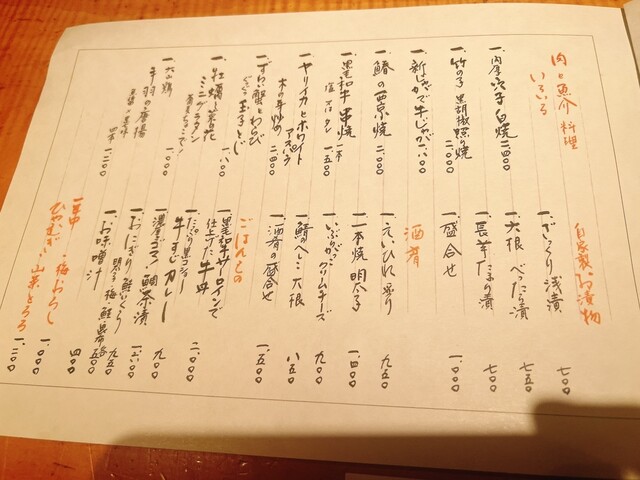 肉と魚介料理
いろいろ
一、内厚穴子白焼 二、四〇〇
一、竹の子 黒胡椒照り焼 二、〇〇〇
一、新じゃがで牛じゃが 一、八〇〇
一、鰆の西京焼 二、〇〇〇
一、黒毛和牛 串焼 一本
塩 又は タレ 一、五〇〇
一、ヤリイカとホワイト
アスパラ
木の芽炒め 二、四〇〇
一、ずわい蟹とわらび
玉子とじ
一、牡蠣と菜花
ミニグラタン 一、八〇〇
一、大山鶏
手羽の唐揚 一、〇〇〇
自家製・お漬物
一、ざっくり浅漬 七〇〇
一、大根 べったら漬 七五〇
一、長芋たまり漬 七〇〇
一、盛合せ 一、〇〇〇
酒肴
一、えいひれ炙り 九五〇
一、一本焼 明太子 一、四〇〇
一、いぶりがっこクリームチーズ 九〇〇
一、鯖のへしこ 大根 八五〇
一、酒肴の盛合せ 一、五〇〇
ごはんもの
一、黒毛和牛サーロインで
仕上げた牛丼 二、〇〇〇
牛すじカレー 九〇〇
一、濃厚ゴマ・鯛茶漬 一、六〇〇
一、おにぎり 鮭 いくら 九五〇
明太子 梅・鮭 五〇〇
一、お味噌汁 四〇〇
ひやむぎ・梅おろし 一、〇〇〇
・山菜とろろ 一、二〇〇